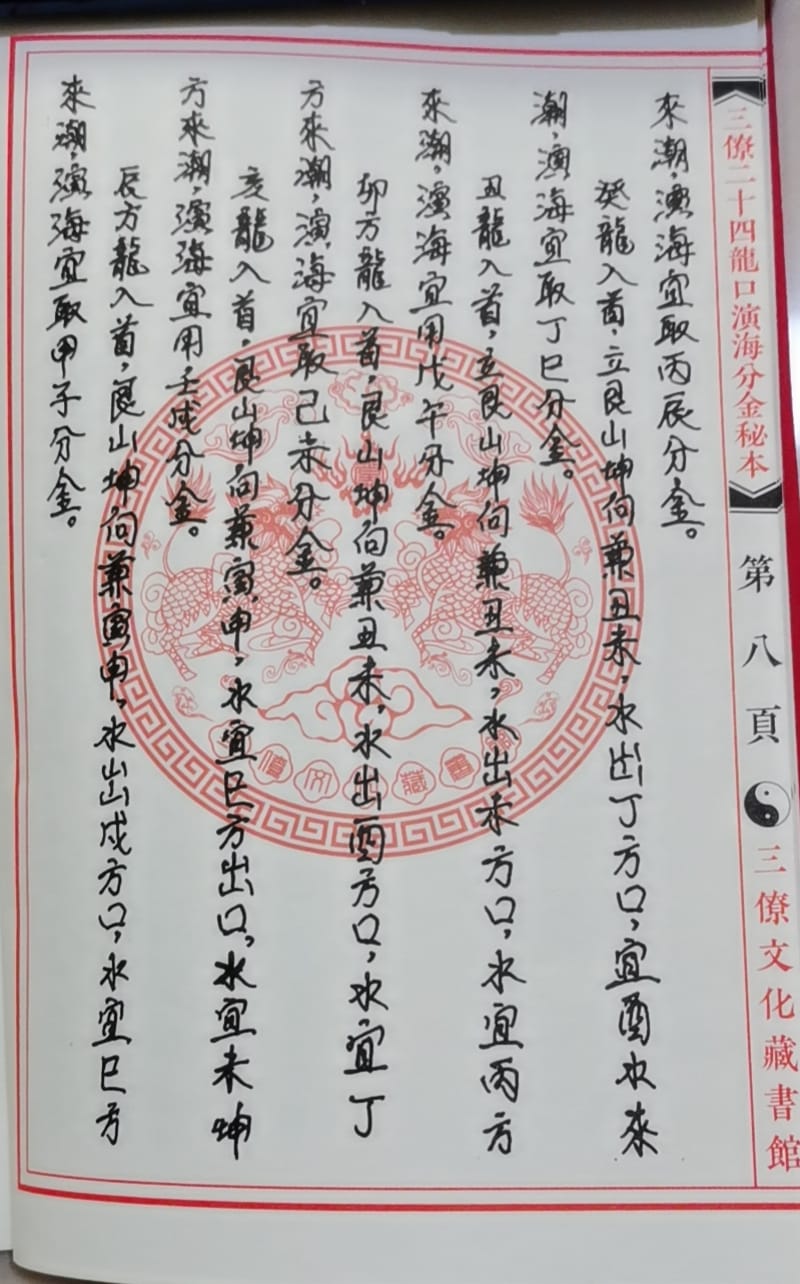 三僚二十四龍口演海分金秘本
第八頁
三僚文化藏書館
來潮，演海宜取丙辰分金。
癸龍入首，立艮山坤向兼丑未，水出丁方口，宜酉水來
潮，演海宜取丁巳分金。
丑龍入首，立艮山坤向兼丑未，水出未方口，水宜丙方
來潮，演海宜用戊午分金。
卯方龍入首，艮山坤向兼丑未，水出酉方口，水宜丁
方來潮，演海宜取己未分金。
亥龍入首，艮山坤向兼寅申，水宜巳方出口，水宜未坤
方來潮，演海宜用壬戌分金。
辰方龍入首，艮山坤向兼寅申，水出戌方口，水宜巳方
來潮，演海宜取甲子分金。